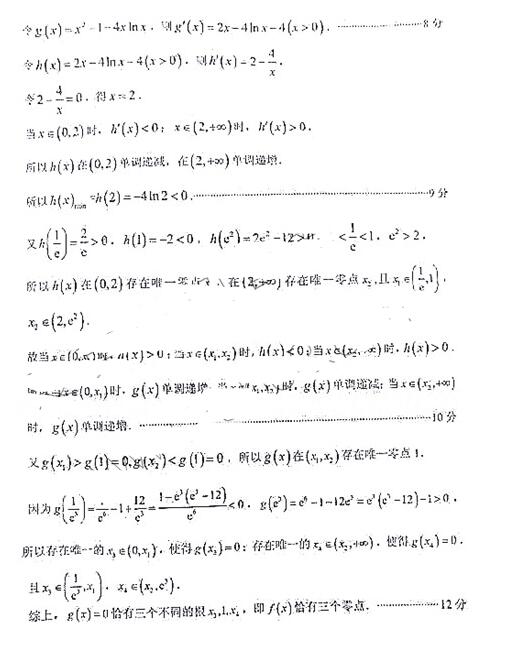 令g(x)=x²-1-4x ln x，则g′(x)=2x-4ln x-4(x>0)，……8分
令h(x)=2x-4ln x-4(x>0)，则h′(x)=2-4/x，
令2-4/x=0，得x=2．
当x∈(0,2)时，h′(x)<0；x∈(2,+∞)时，h′(x)>0．
所以h(x)在(0,2)单调递减，在(2,+∞)单调递增．
所以h(x)min=h(2)=-4ln2<0．……9分
又h(1/e)=2/e>0，h(1)=-2<0，h(e²)=2e²-12>0， <1/e<1，e²>2，
所以h(x)在(0,2)存在唯一零点 在(2,+∞)存在唯一零点x₂，且x₁∈(1/e,1)，
x₂∈(2,e²)．
故当x∈(0,x₁)时，h(x)>0；当x∈(x₁,x₂)时，h(x)<0；当x∈(x₂,+∞)时，h(x)>0．
x∈(0,x₁)时，g(x)单调递增 x₁,x₂)时，g(x)单调递减；当x∈(x₂,+∞)
时，g(x)单调递增．……10分
又g(x₁)>g(1)=0,g(x₂)<g(1)=0，所以g(x)在(x₁,x₂)存在唯一零点1．
因为g(1/e³)= /e⁶-1+12/e³=1-e³(e³-12)/e⁶<0，g(e³)=e⁶-1-12e³=e³(e³-12)-1>0，
所以存在唯一的x₃∈(0,x₁)，使得g(x₃)=0；存在唯一的x₄∈(x₂,+∞)，使得g(x₄)=0．
且x₃∈(1/e³,x₁)，x₄∈(x₂,e³)．
综上，g(x)=0恰有三个不同的根x₃,1,x₄，即f(x)恰有三个零点．……12分